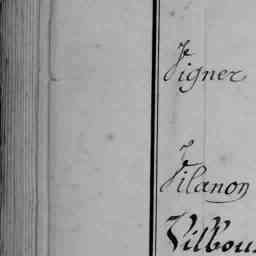 Vigner
Vilanon
Vilbou